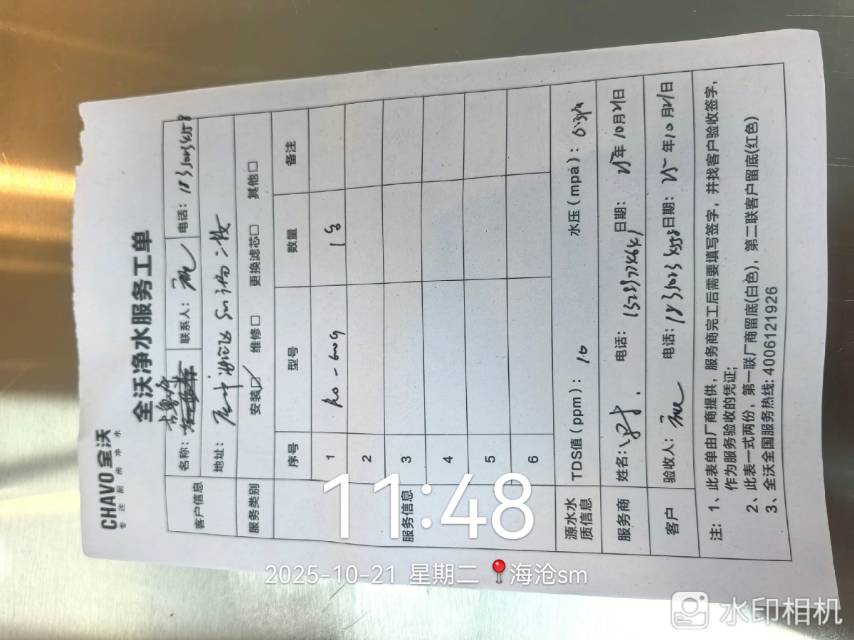 CHAVO 全沃
专注厨房净水
全沃净水服务工单
客户信息 名称： 联系人： 电话：
地址： 海沧 SM 二楼
服务类别 安装☑ 维修□ 更换滤芯□ 其他□
服务信息 序号 型号 数量 备注
1 Ro-600G 1台
2
3
4
5
6
源水水质信息 TDS值（ppm）：10 水压（mpa）：
服务商 姓名： 电话： 日期：25年10月21日
客户 验收人： 电话： 日期：25年10月21日
注：1、此表单由厂商提供，服务商完工后需要填写签字，并找客户验收签字，
作为服务验收的凭证；
2、此表一式两份，第一联厂商留底(白色)，第二联客户留底(红色)
3、全沃全国服务热线: 4006121926
11:48
2025-10-21 星期二 海沧sm
水印相机